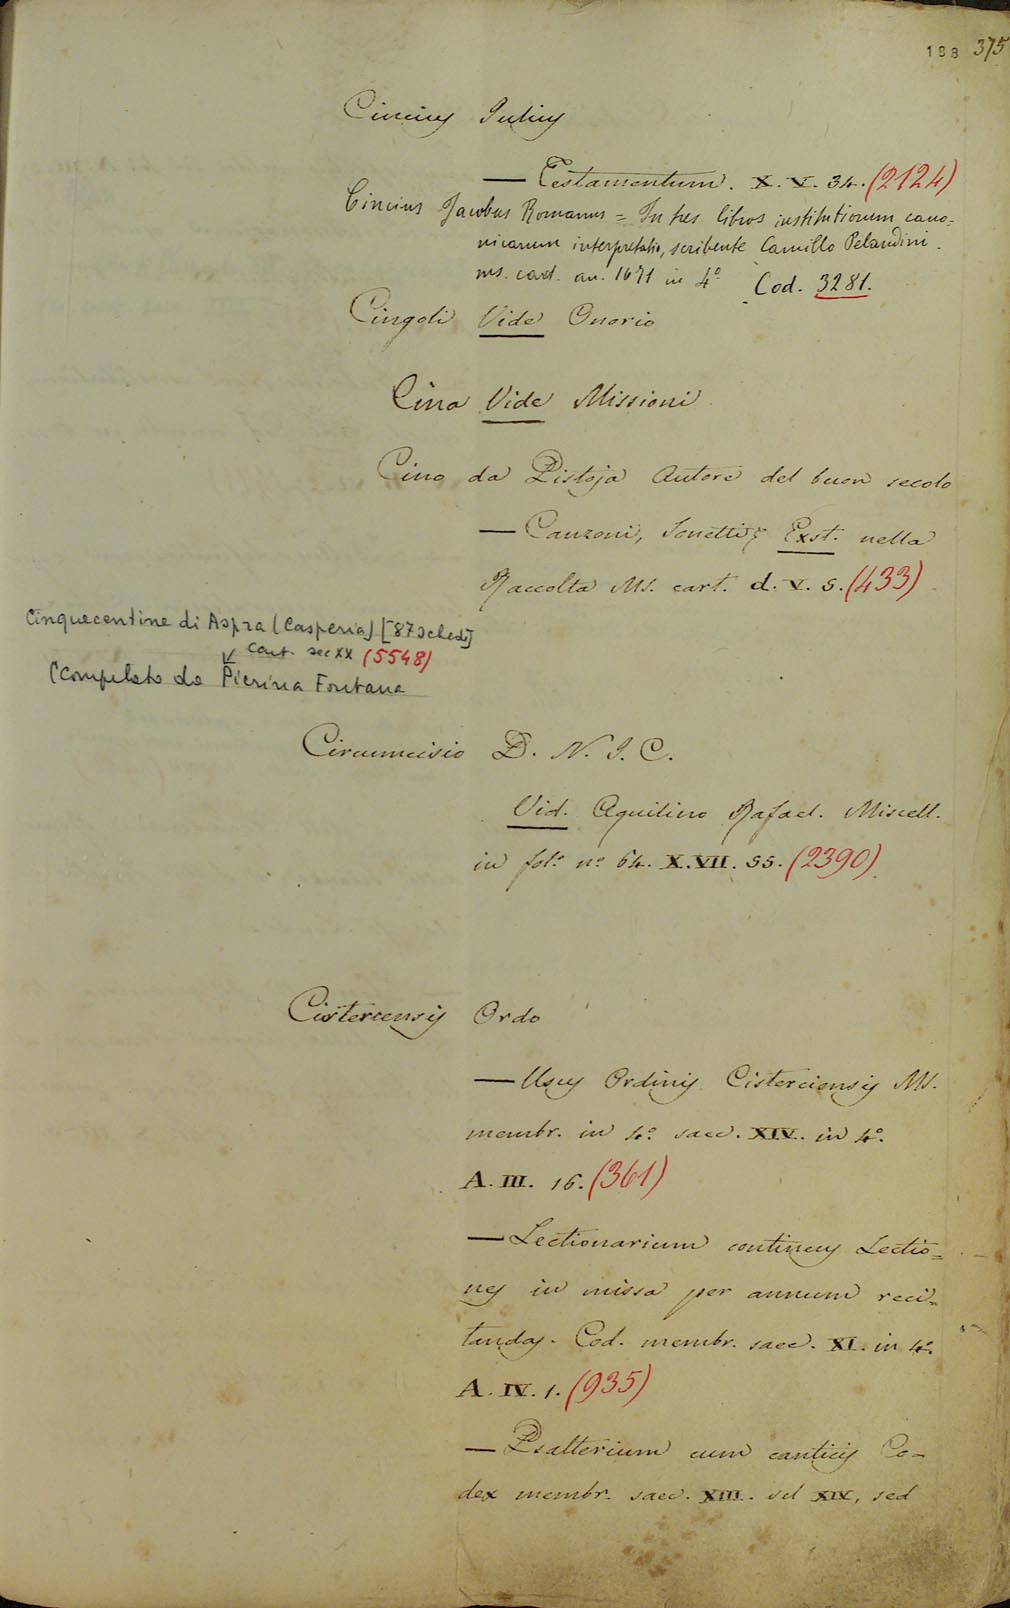 188 375
Cincius Julius
— Testamentum. X. V. 34. (2124)
Cincius Jacobus Romanus = In tres libros institutionum cano-
nicarum interpretatio, scribente Camillo Pelandini.
ms. cart. an. 1671 in 4.º Cod. 3281.
Cingoli Vide Onorio
Cina Vide Missioni
Cino da Pistoja Autore del buon secolo
— Canzoni, Sonetti; Exst. nella
Raccolta Ms. cart. d. V. 5. (433)
Cinquecentine di Aspra (Casperia) [87 schede]
cart. sec XX (5548)
(compilate da Pierina Fontana
Circumcisio D. N. J. C.
Vid. Aquilino Rafael. Miscell.
in fol.º n.º 64. X. VII. 55. (2390)
Cisterciensis Ordo
— Usus Ordinis Cisterciensis Ms.
membr. in 4.º saec. XIV. in 4.º
A. III. 16. (361)
— Lectionarium continens Lectio=
nes in missa per annum reci=
tandas. Cod. membr. saec. XI. in 4.º
A. IV. 1. (935)
— Psalterium cum canticis Co-
dex membr. saec. XIII. vel XIV, sed